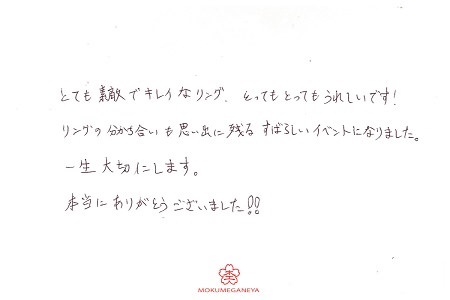 とても素敵でキレイなリング、とってもとってもうれしいです!
リングの分かち合いも思い出に残るすばらしいイベントになりました。
一生大切にします。
本当にありがとうございました!!
MOKUMEGANEYA